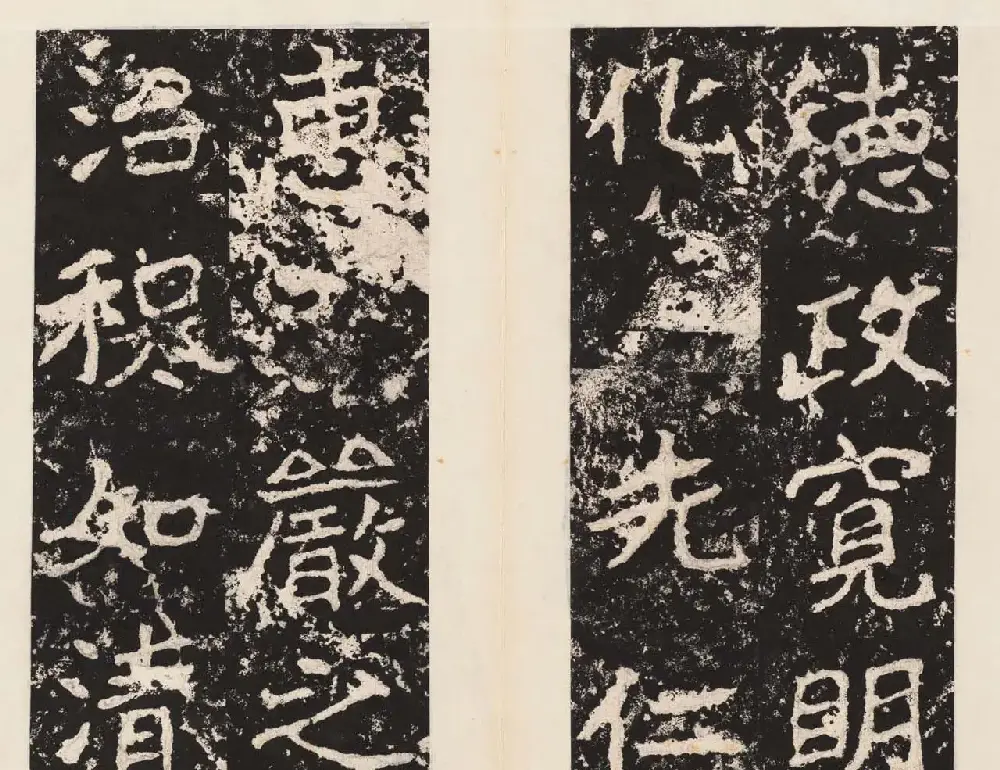 德政寬明
化先仁
惠嚴之
治穆如清